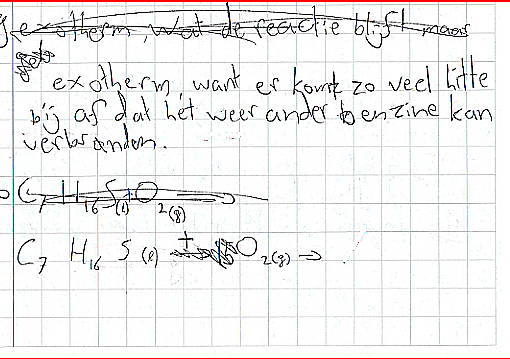 exotherm, want de reactie blijft maar
exotherm, want er komt zo veel hitte
bij af dat het weer ander benzine kan
verbranden.
C7 H16 S(l) O2(g)
C7 H16 S (l) + O2(g) →